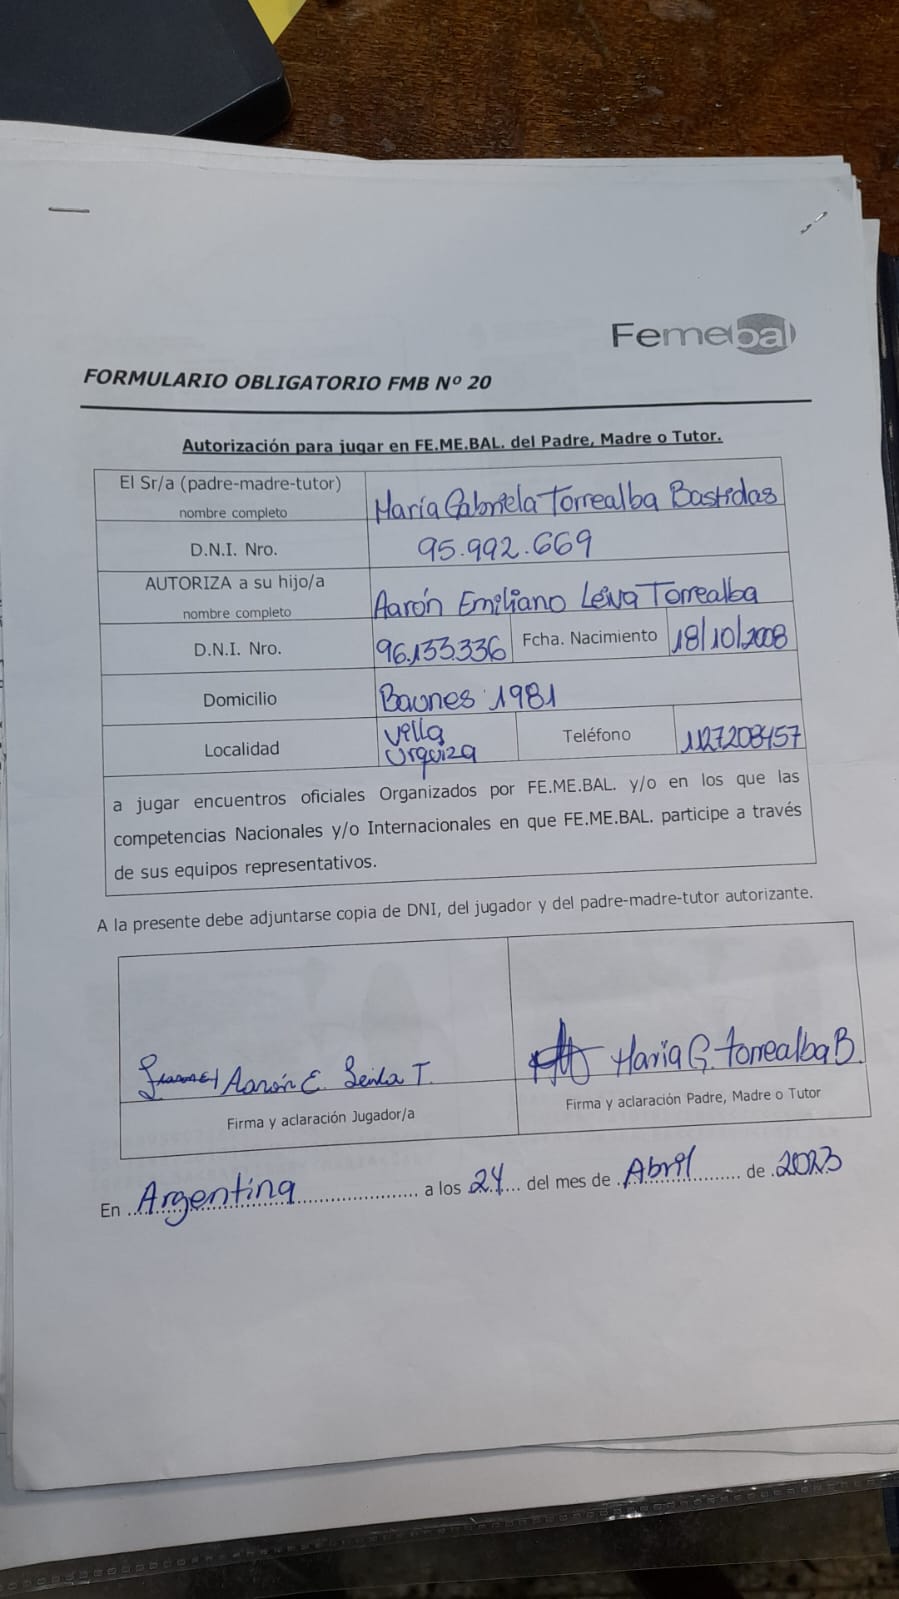 Femebal
FORMULARIO OBLIGATORIO FMB Nº 20
Autorización para jugar en FE.ME.BAL. del Padre, Madre o Tutor.
El Sr/a (padre-madre-tutor)
nombre completo
María Gabriela Torrealba Bastidas
D.N.I. Nro.
95.992.669
AUTORIZA a su hijo/a
nombre completo
Aarón Emiliano Leiva Torrealba
D.N.I. Nro.
96.133.336
Fcha. Nacimiento
18/10/2008
Domicilio
Baunes 1981
Localidad
Villa
Urquiza
Teléfono
1127208457
a jugar encuentros oficiales Organizados por FE.ME.BAL. y/o en los que las
competencias Nacionales y/o Internacionales en que FE.ME.BAL. participe a través
de sus equipos representativos.
A la presente debe adjuntarse copia de DNI, del jugador y del padre-madre-tutor autorizante.
Aarón E. Leiva T.
Firma y aclaración Jugador/a
María G. Torrealba B.
Firma y aclaración Padre, Madre o Tutor
En Argentina a los 24 del mes de Abril de 2023